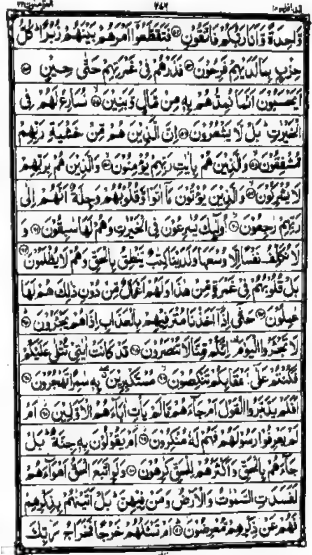 وَّاحِدَةً وَّاَنَا رَبُّكُمْ فَاتَّقُوْنِ ﴿۵۲﴾ فَتَقَطَّعُوْۤا اَمْرَهُمْ بَيْنَهُمْ زُبُرًا كُلُّ
حِزْبٍۭ بِمَا لَدَيْهِمْ فَرِحُوْنَ ﴿۵۳﴾ فَذَرْهُمْ فِيْ غَمْرَتِهِمْ حَتّٰى حِيْنٍ ﴿۵۴﴾
اَيَحْسَبُوْنَ اَنَّمَا نُمِدُّهُمْ بِهٖ مِنْ مَّالٍ وَّبَنِيْنَ ﴿۵۵﴾ نُسَارِعُ لَهُمْ فِي
الْخَيْرٰتِ بَلْ لَّا يَشْعُرُوْنَ ﴿۵۶﴾ اِنَّ الَّذِيْنَ هُمْ مِّنْ خَشْيَةِ رَبِّهِمْ
مُّشْفِقُوْنَ ﴿۵۷﴾ وَالَّذِيْنَ هُمْ بِاٰيٰتِ رَبِّهِمْ يُؤْمِنُوْنَ ﴿۵۸﴾ وَالَّذِيْنَ هُمْ بِرَبِّهِمْ
لَا يُشْرِكُوْنَ ﴿۵۹﴾ وَالَّذِيْنَ يُؤْتُوْنَ مَاۤ اٰتَوْا وَّقُلُوْبُهُمْ وَجِلَةٌ اَنَّهُمْ اِلٰى
رَبِّهِمْ رٰجِعُوْنَ ﴿۶۰﴾ اُولٰٓئِكَ يُسٰرِعُوْنَ فِي الْخَيْرٰتِ وَهُمْ لَهَا سٰبِقُوْنَ ﴿۶۱﴾ وَ
لَا نُكَلِّفُ نَفْسًا اِلَّا وُسْعَهَا وَلَدَيْنَا كِتٰبٌ يَّنْطِقُ بِالْحَقِّ وَهُمْ لَا يُظْلَمُوْنَ ﴿۶۲﴾
بَلْ قُلُوْبُهُمْ فِيْ غَمْرَةٍ مِّنْ هٰذَا وَلَهُمْ اَعْمَالٌ مِّنْ دُوْنِ ذٰلِكَ هُمْ لَهَا
عٰمِلُوْنَ ﴿۶۳﴾ حَتّٰۤى اِذَاۤ اَخَذْنَا مُتْرَفِيْهِمْ بِالْعَذَابِ اِذَا هُمْ يَجْـَٔرُوْنَ ﴿۶۴﴾
لَا تَجْـَٔرُوا الْيَوْمَ اِنَّكُمْ مِّنَّا لَا تُنْصَرُوْنَ ﴿۶۵﴾ قَدْ كَانَتْ اٰيٰتِيْ تُتْلٰى عَلَيْكُمْ
فَكُنْتُمْ عَلٰۤى اَعْقَابِكُمْ تَنْكِصُوْنَ ﴿۶۶﴾ مُسْتَكْبِرِيْنَ بِهٖ سٰمِرًا تَهْجُرُوْنَ ﴿۶۷﴾
اَفَلَمْ يَدَّبَّرُوا الْقَوْلَ اَمْ جَآءَهُمْ مَّا لَمْ يَاْتِ اٰبَآءَهُمُ الْاَوَّلِيْنَ ﴿۶۸﴾ اَمْ
لَمْ يَعْرِفُوْا رَسُوْلَهُمْ فَهُمْ لَهٗ مُنْكِرُوْنَ ﴿۶۹﴾ اَمْ يَقُوْلُوْنَ بِهٖ جِنَّةٌ بَلْ
جَآءَهُمْ بِالْحَقِّ وَاَكْثَرُهُمْ لِلْحَقِّ كٰرِهُوْنَ ﴿۷۰﴾ وَلَوِ اتَّبَعَ الْحَقُّ اَهْوَآءَهُمْ
لَفَسَدَتِ السَّمٰوٰتُ وَالْاَرْضُ وَمَنْ فِيْهِنَّ بَلْ اَتَيْنٰهُمْ بِذِكْرِهِمْ
فَهُمْ عَنْ ذِكْرِهِمْ مُّعْرِضُوْنَ ﴿۷۱﴾ اَمْ تَسْـَٔلُهُمْ خَرْجًا فَخَرَاجُ رَبِّكَ